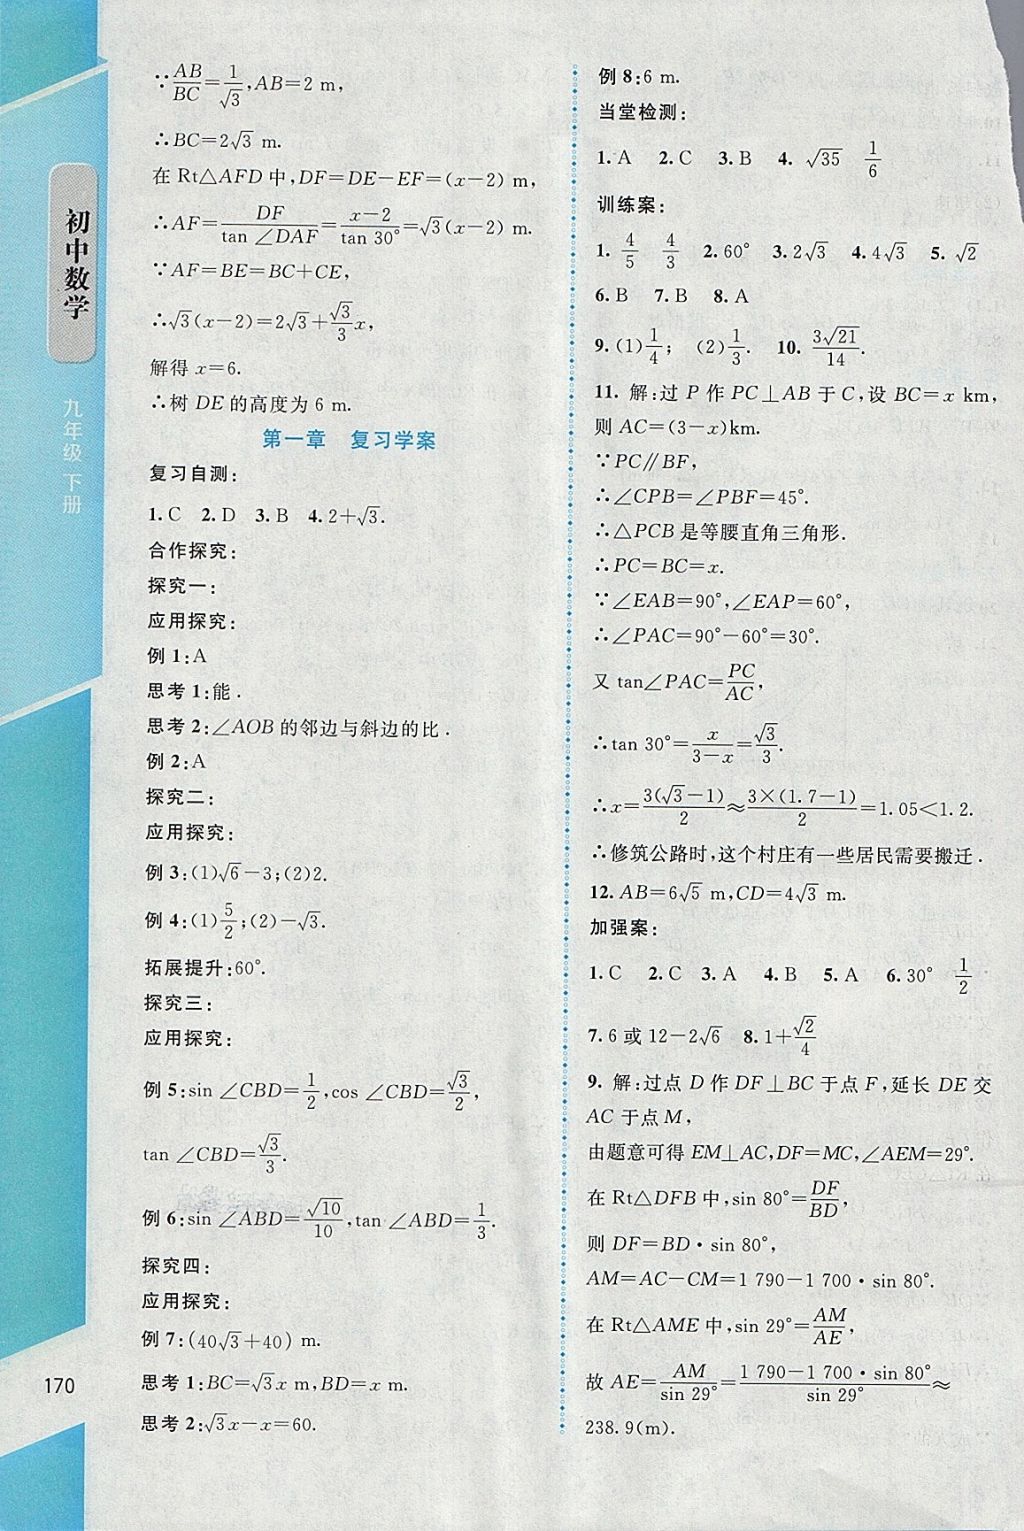 初中数学
九年级 下册
170
∵AB/BC=1/√3,AB=2 m,
∴BC=2√3 m.
在 Rt△AFD 中,DF=DE-EF=(x-2) m,
∴AF=DF/tan ∠DAF=x-2/tan 30°=√3(x-2) m.
∵AF=BE=BC+CE,
∴√3(x-2)=2√3+√3/3x,
解得 x=6.
∴树 DE 的高度为 6 m.
第一章 复习学案
复习自测:
1.C 2.D 3.B 4.2+√3.
合作探究:
探究一:
应用探究:
例 1:A
思考 1:能.
思考 2:∠AOB 的邻边与斜边的比.
例 2:A
探究二:
应用探究:
例 3:(1)√6-3;(2)2.
例 4:(1)5/2;(2)-√3.
拓展提升:60°.
探究三:
应用探究:
例 5:sin ∠CBD=1/2,cos ∠CBD=√3/2,
tan ∠CBD=√3/3.
例 6:sin ∠ABD=√10/10,tan ∠ABD=1/3.
探究四:
应用探究:
例 7:(40√3+40) m.
思考 1:BC=√3x m,BD=x m.
思考 2:√3x-x=60.
例 8:6 m.
当堂检测:
1.A 2.C 3.B 4. √35 1/6
训练案:
1. 4/5 4/3 2.60° 3.2√3 4.4√3 5.√2
6.B 7.B 8.A
9.(1)1/4; (2)1/3. 10. 3√21/14.
11. 解:过 P 作 PC⊥AB 于 C,设 BC=x km,
则 AC=(3-x)km.
∵PC∥BF,
∴∠CPB=∠PBF=45°.
∴△PCB 是等腰直角三角形.
∴PC=BC=x.
∵∠EAB=90°,∠EAP=60°,
∴∠PAC=90°-60°=30°.
又 tan∠PAC=PC/AC,
∴tan 30°=x/3-x=√3/3.
∴x=3(√3-1)/2≈3×(1.7-1)/2=1.05<1.2.
∴修筑公路时,这个村庄有一些居民需要搬迁.
12. AB=6√5 m,CD=4√3 m.
加强案:
1.C 2.C 3.A 4.B 5.A 6.30° 1/2
7.6 或 12-2√6 8.1+√2/4
9. 解:过点 D 作 DF⊥BC 于点 F,延长 DE 交
AC 于点 M,
由题意可得 EM⊥AC,DF=MC,∠AEM=29°.
在 Rt△DFB 中,sin 80°=DF/BD,
则 DF=BD·sin 80°,
AM=AC-CM=1 790-1 700·sin 80°.
在 Rt△AME 中,sin 29°=AM/AE,
故 AE=AM/sin 29°=1 790-1 700·sin 80°/sin 29°≈
238.9(m).